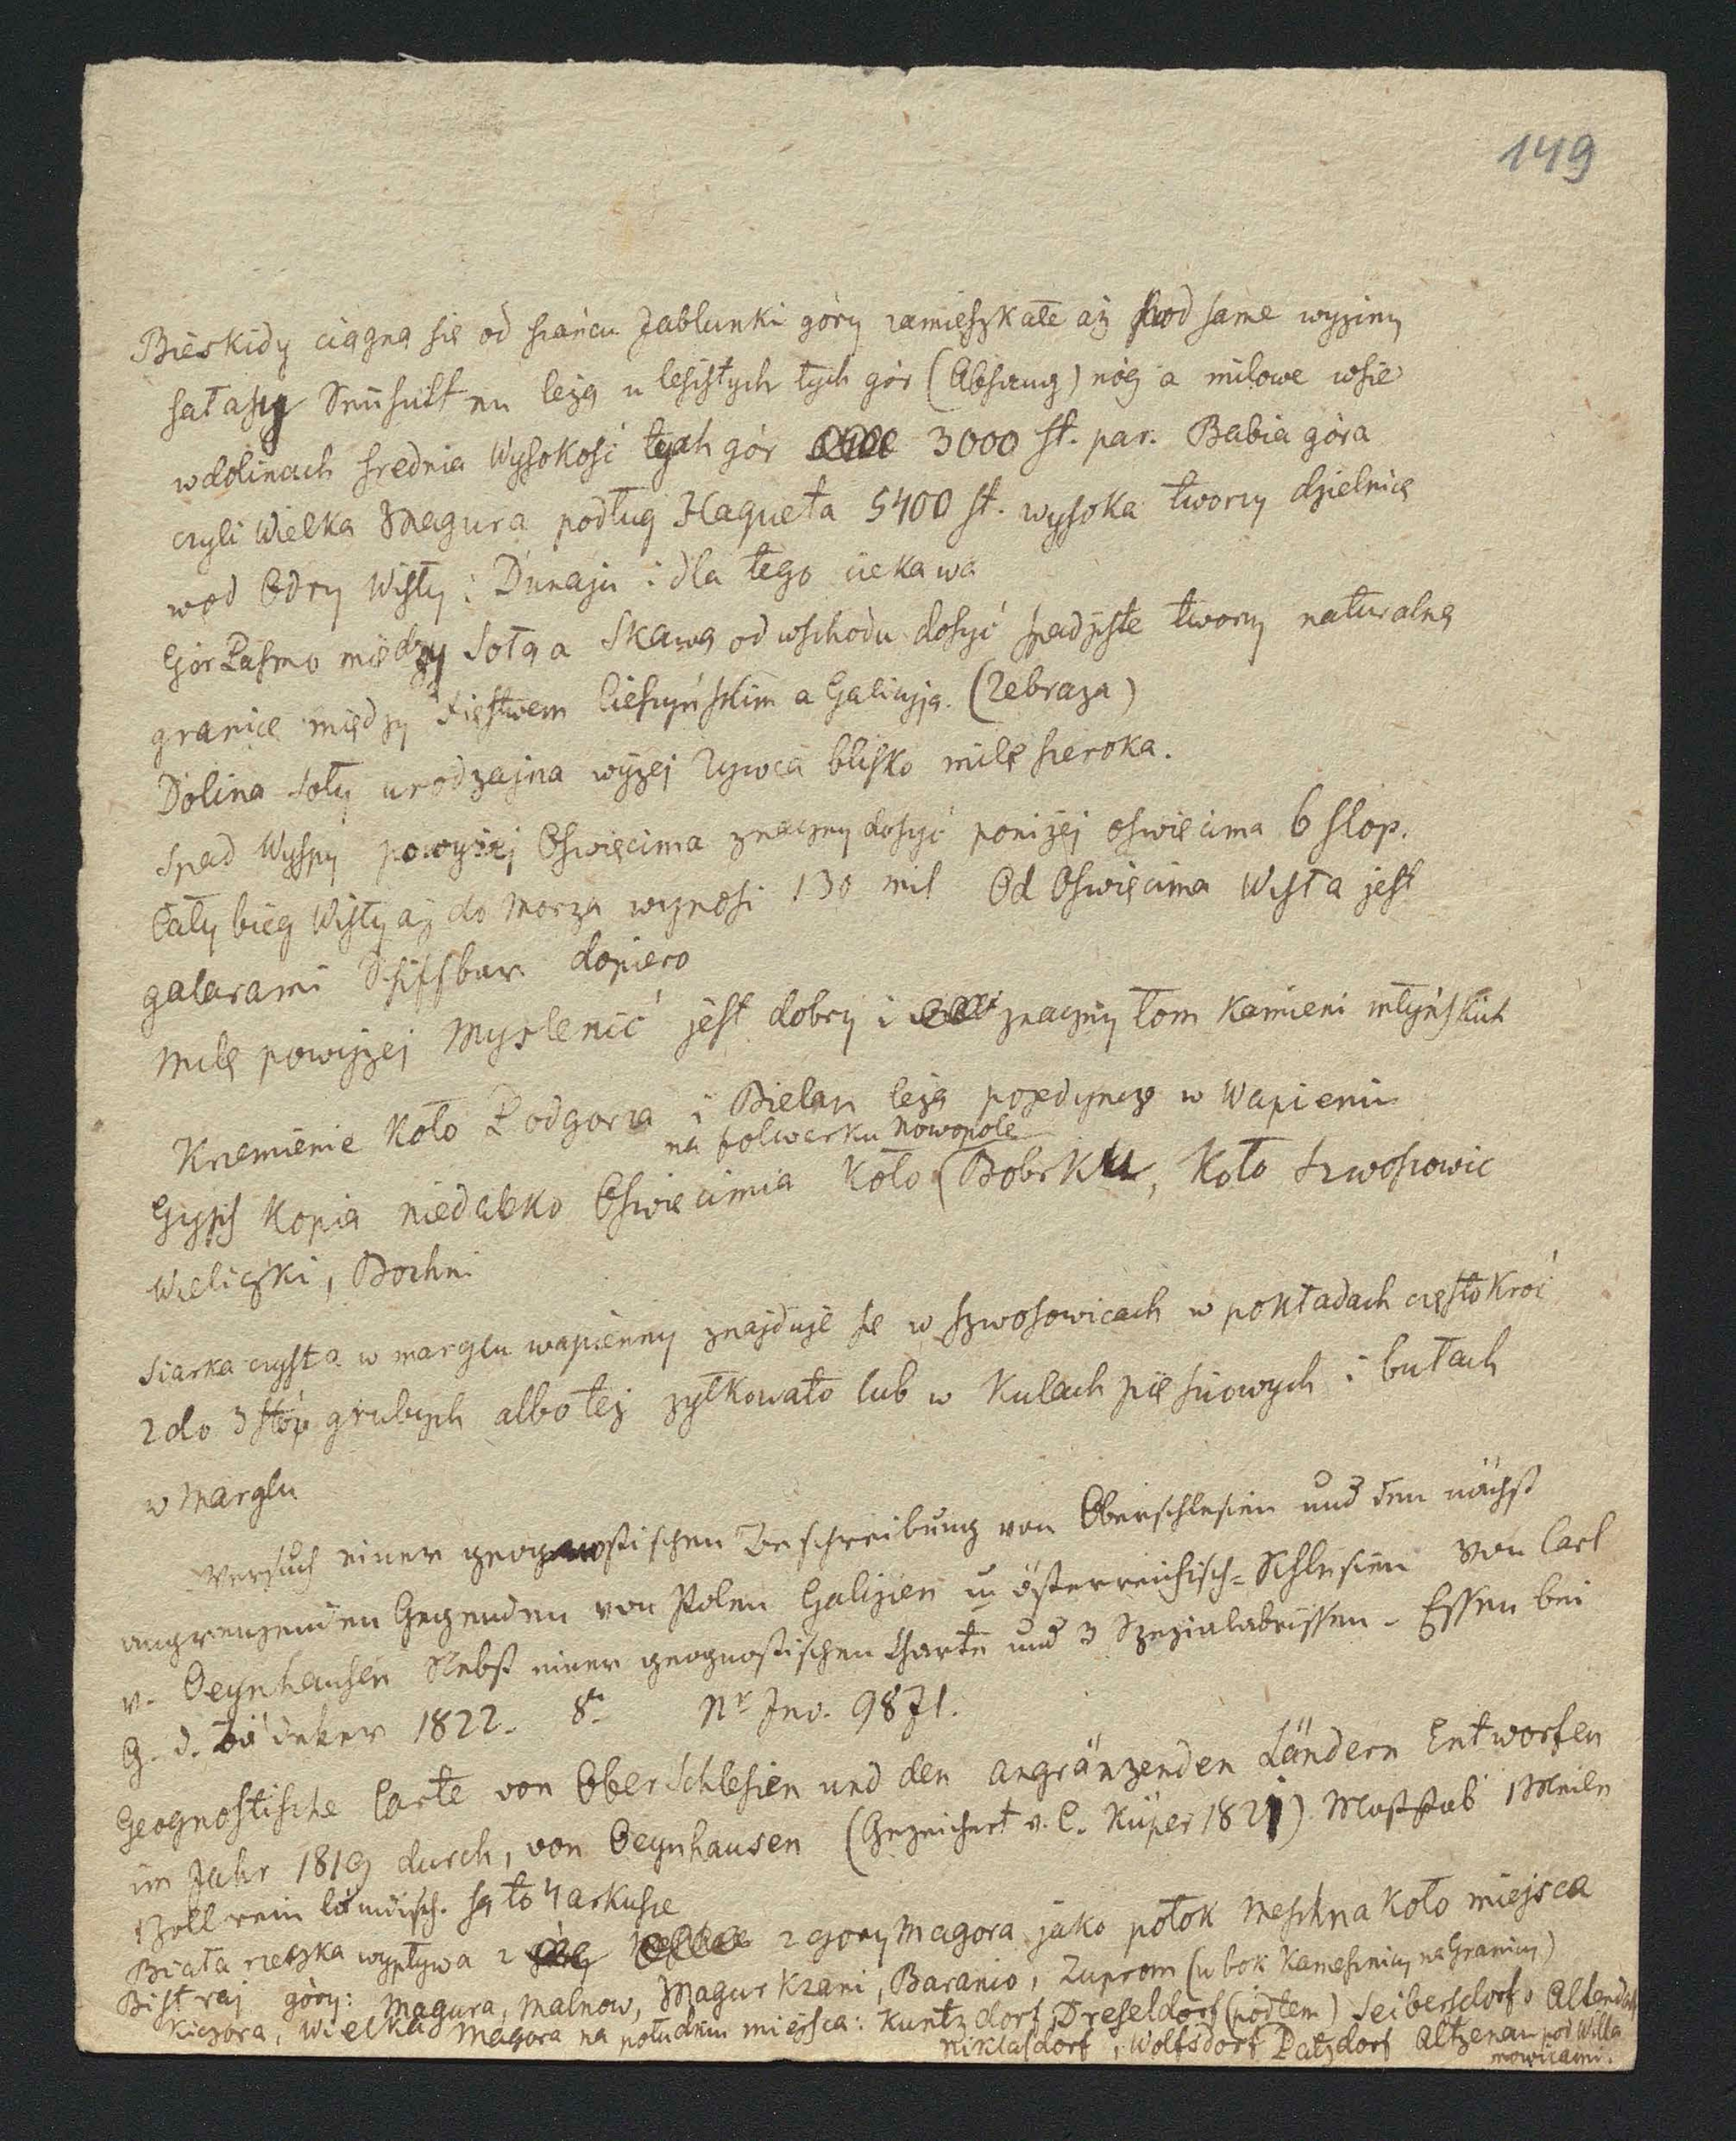 149
Bieskidy ciągną się od szańcu Jablunki góry zamieszkałe aż pod same wyżiny
sałaszy Sennhütten leżą u lesistych tych gór (Abhang) nóg a milowe wsie
w dolinach srednia Wysokość tych gór 3000 st. par. Babia góra
czyli Wielka Magura podług Haqueta 5400 st. wysoka tworzy dzielnicę
wod Odry Wisły i Dunaju i dla tego ciekawa
Gór Pasmo między Sołą a Skawą od wschodu dosyć spadziste tworzy naturalną
granicę między Xięstwem Cieszyńskim a Galicyją. (Zebraza)
Dolina Soły urodzajna wyżej Zywca blisko milę szeroka.
Spad Wyspy powyżej Oswięcima znaczny dosyć poniżej oswięcima 6 stop.
Cały bieg Wisły aż do morza wynosi 130 mil Od Oswięcima Wisła jest
galarami Schifsbar dopiero
Milę powyżej Myslenić jest dobry i znaczny łom kamieni młyńskich
Krzemienie koło Podgorza i Bielan leżą pojedynczo w Wapieniu
na folwarku Nowopole
Gyps kopią niedaleko Oswięcimia koło (Bobrku, koło Szwoszowic
Wieliczki, Bochni
Siarka czysta w marglu wapienny znajduje się w Szwosowicach w pokładach częstokroć
2 do 3 stóp grubych albo też żyłkowato lub w kulach pięściowych i bułach
w Marglu
Versuch einer geognostischen Beschreibung von Oberschlesien und den nächst
angrenzenden Gegenden von Polen Galizien u österreichisch-Schlesien von Carl
v. Oeynhausen Nebst einer geognostischen Charte und 3 Spezialabrissen. Essen bei
G. D. Bädeker 1822. 8º Nr Inv. 9871.
Geognostische Carte von Ober Schlesien und den angränzenden Ländern Entworfen
im Jahr 1819 durch, von Oeynhausen (Gezeichnet v. C. Küper 1821) Maßstab 1 Meile
1 Zoll rein są to 4 arkusze
Biała rzeczka wypływa z z gory Magora jako potok Meschna koło miejsca
Bistraj góry: Magura, Malnow, Magurkzani, Baranio, Zuprom (w bok Kamesznicy na Granicy)
Kiczora, Wielka Magora na południu miejsca: Kuntzdorf, Dreseldorf (podlem) Seibersdorf, Altendorf
Niklasdorf, Wolfsdorf Batzdorf Altzenau pod Willa
mowicami.